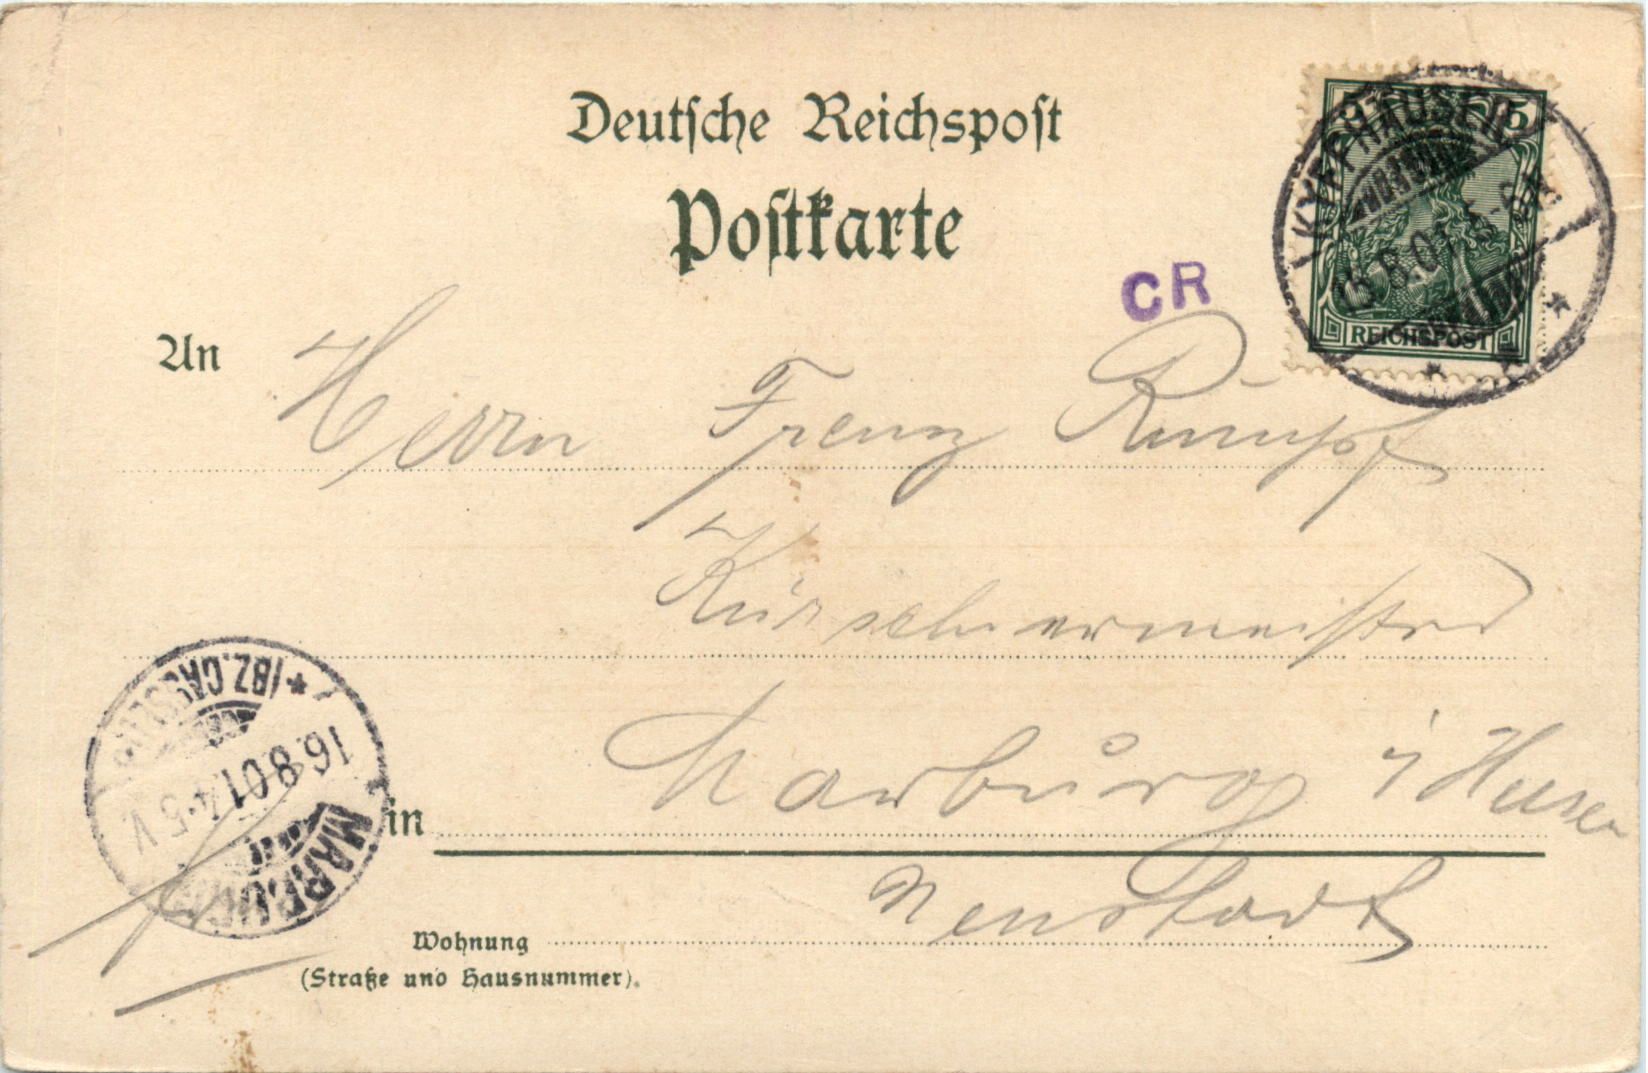 Deutsche Reichspost
Postkarte
5 5
REICHSPOST
KYFFHÄUSER
15.8.01.
CR
An Herrn Franz Rumpf
Kürschnermeister
in Marburg i Hessen
Neustadt
Wohnung
(Straße und Hausnummer).
MARBURG
16.8.01.4-5V.
* (BZ.CASSEL)